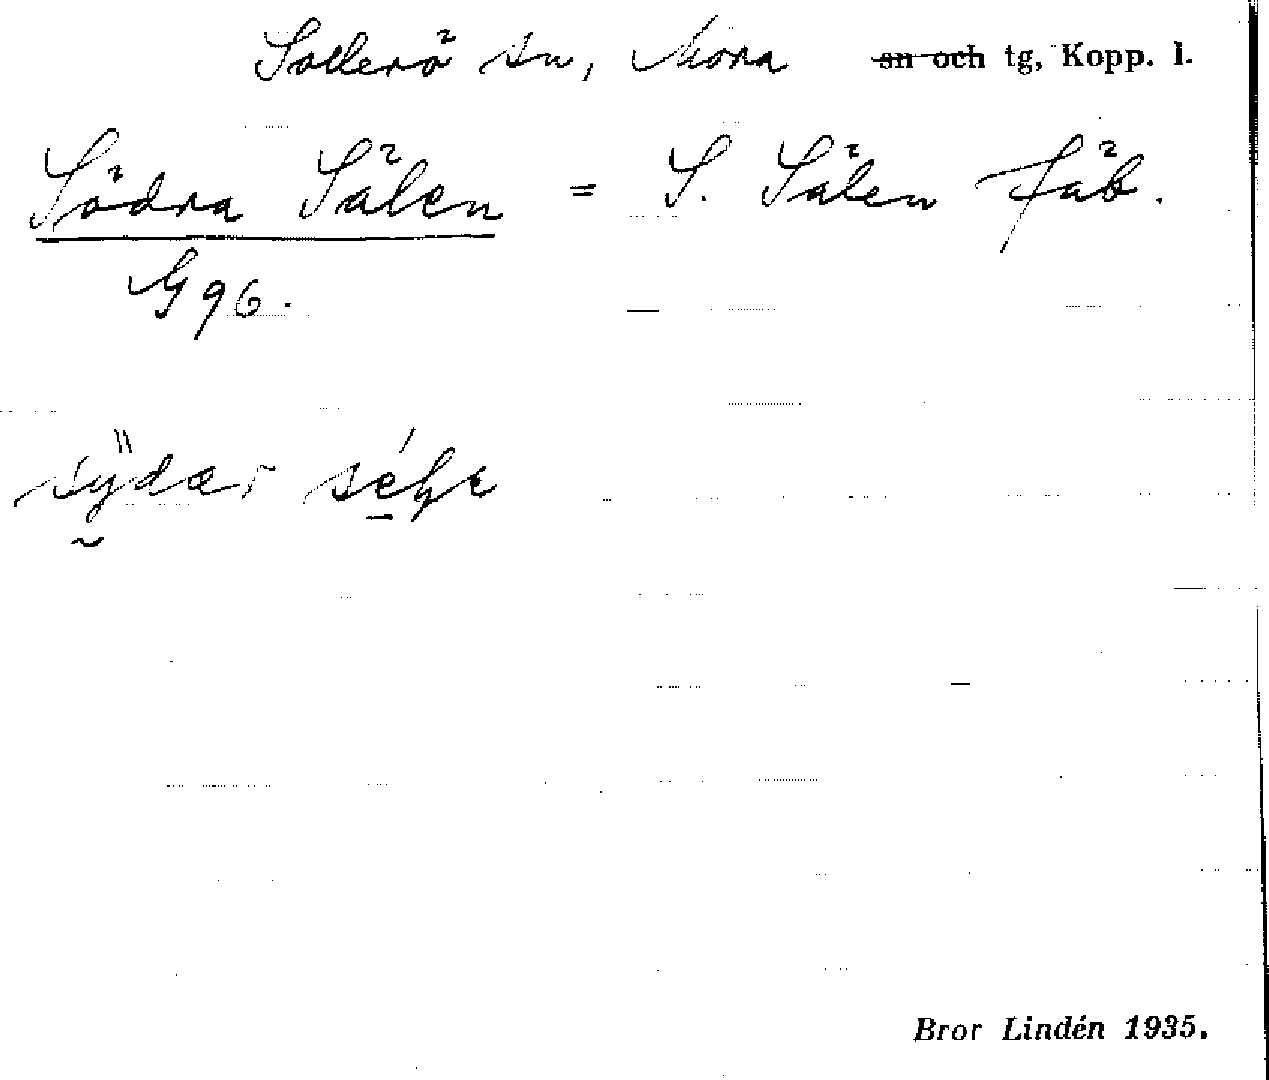 Sollerö sn, Mora sn och tg, Kopp. l.
Södra Sälen = S. Sälen fäb.
G 96.
Bror Lindén 1935.